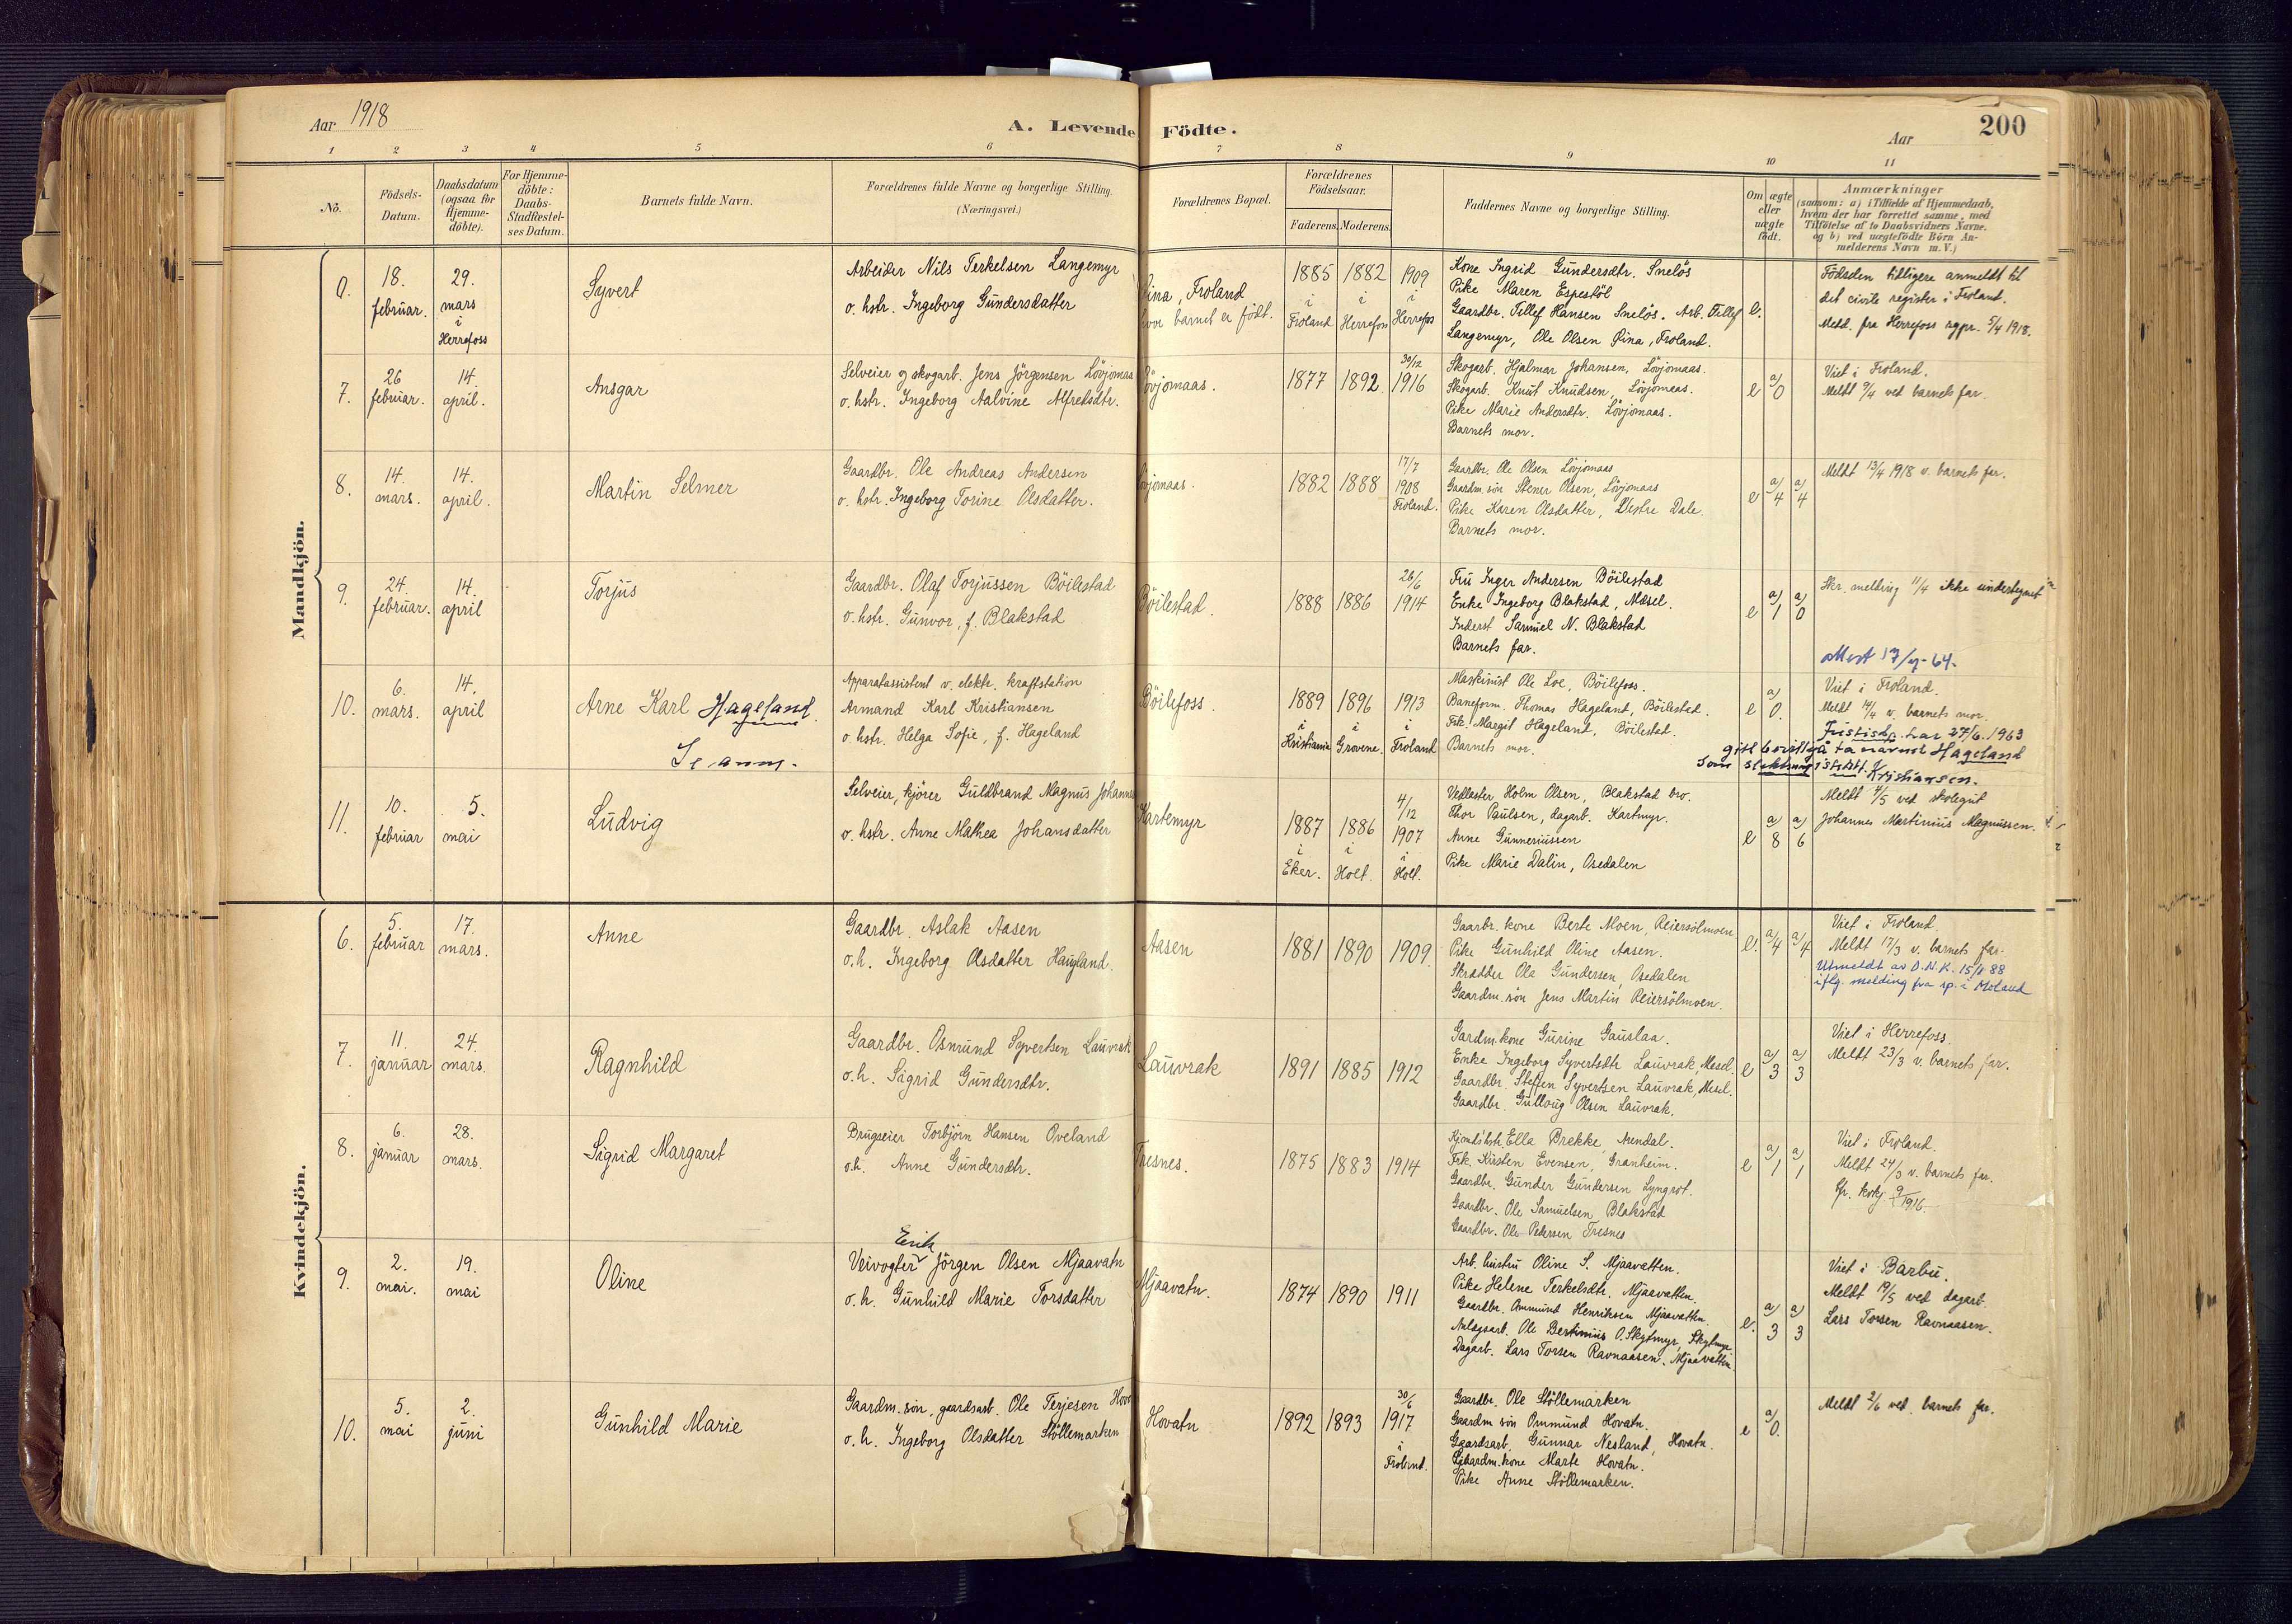 Aar 1918
A. Levende Födte.
Aar
200
1 2 3 4 5 6 7 8 9 10 11
No.
Födsels-
Datum.
Daabsdatum
(ogsaa for
Hjemme-
döbte).
For Hjemme-
döbte:
Daabs-
Stadfestel-
ses Datum.
Barnets fulde Navn.
Forældrenes fulde Navne og borgerlige Stilling.
(Næringsvei.)
Forældrenes Bopæl.
Forældrenes
Födselsaar.
Faderens. Moderens.
Faddernes Navne og borgerlige Stilling.
Om ægte
eller
uægte
födt.
Anmærkninger
(saasom: a) i Tilfælde af Hjemmedaab,
hvem der har forrettet samme, med
Tilföielse af to Daabsvidners Navne.
og b) ved uægtefödte Börn An-
melderens Navn m. V.)
Mandkjön.
0.
18.
februar.
29.
mars
i
Herrefoss
Syvert
Arbeider Nils Terkelsen Langemyr
o. hstr. Ingeborg Gundersdatter
Rina, Froland
hvor barnet er födt.
1885
i
Froland
1882
i
Herrefoss
1909
i
Herrefos
Kone Ingrid Gundersdtr. Snelös
Pike Maren Espestöl
Gaardbr. Tellef Hansen Snelös. Arb. Tellef
Langemyr, Ole Olsen Rina, Froland.
e.
Födselen tidligere anmeldt til
det civile register i Froland.
Meld. fra Herrefoss sgpr. 5/4 1918.
7.
26
februar.
14.
april.
Ansgar
Selveier og skogarb. Jens Jörgensen Lövjomaas
o. hstr. Ingeborg Aalvine Alfredsdtr.
Lövjomaas.
1877
1892.
30/12
1916
Skogarb. Hjalmar Johansen, Lövjomaas.
Skogarb. Knut Knudsen, Lövjomaas.
Pike Marie Andersdtr. Lövjomaas.
Barnets mor.
e a/0
Viet i Froland.
Meldt 9/4 ved barnets far.
8.
14.
mars.
14.
april.
Martin Selmer
Gaardbr. Ole Andreas Andersen
o. hstr. Ingeborg Torine Olsdatter.
Lövjomaas.
1882
1888
17/7
1908
Froland.
Gaardbr. Ole Olsen Lövjomaas
Gaardm. sön Stener Olsen, Lövjomaas
Pike Karen Olsdatter, Vestre Dale.
Barnets mor.
e a/4 a/4
Meldt 13/4 1918 v. barnets far.
9.
24.
februar.
14.
april
Torjus
Gaardbr. Olaf Torjussen Böilestad
o. hstr. Gunvor, f. Blakstad
Böilestad.
1888
1886
26/6
1914
Fru Inger Andersen Böilestad
Enke Ingeborg Blakstad, Mæsel.
Inderst Samuel N. Blakstad
Barnets far.
e a/1 a/0
Skr. melding 11/4 ikke undertegnet
10.
6.
mars.
14.
april
Arne Karl Hageland.
Se anm.
Apparatassistent v. elektr. kraftstation
Armand Karl Kristiansen
o. hstr. Helga Sofie, f. Hageland
Böilefoss.
1889
i
Kristiania
1896
i
Grovene.
1913
i
Froland
Maskinist Ole Loe, Böilefoss.
Baneform. Thomas Hageland, Böilestad.
Frk. Margit Hageland, Böilestad.
Barnets mor.
e a/0.
Viet i Froland.
Meldt 14/4 v. barnets mor.
Justisdp. har 27/6. 1963
å ta navnet Hageland
som slektsnavn istedf. f. Kristiansen.
11.
10.
februar
5.
mai
Ludvig
Selveier, kjörer Guldbrand Magnus Johannes
o. hstr. Anne Mathea Johansdatter
Hartemyr
1887
i
Eker.
1886
i
Holt.
4/12
1907
i
Holt.
Vedlaster Holm Olsen, Blakstad bro.
Thor Paulsen, dagarb. Hartmyr.
Anne Gunneriussen
Pike Marie Dalin, Osedalen
e a/8 a/6
Meldt 4/5 ved skolegut
Johannes Martinius Magnussen.
Kvindekjön.
6.
5.
februar
17.
mars.
Anne
Gaardbr. Aslak Aasen
o.h. Ingeborg Olsdatter Haugland.
Aasen
1881
1890
1909.
Gaardbr. kone Berte Moen, Reiersölmoen
Pike Gunhild Oline Aasen.
Skrædder Ole Gundersen, Osedalen
Gaardm. sön Jens Martin Reiersölmoen.
e. a/4 a/4
Viet i Froland.
Meldt 17/3 v. barnets far.
Utmeldt av D.N.K. 15/8 88
iflg. melding fra sp. i Moland
7.
11.
januar
24.
mars.
Ragnhild
Gaardbr. Osmund Syvertsen Lauvrak
o.h. Sigrid Gundersdtr.
Lauvrak
1891
1885
1912
Gardm.kone Gurine Gauslaa.
Enke Ingeborg Syvertsdtr Lauvrak, Mesel.
Gaardbr. Steffen Syvertsen Lauvrak, Mesel.
Gaardbr. Gulloug Olsen Lauvrak.
e a/3 a/3
Viet i Herrefoss.
Meldt 23/3 v. barnets far.
8.
6.
januar
28.
mars.
Sigrid Margaret
Brugseier Torbjörn Hansen Oveland
o.h. Anne Gundersdtr.
Tresnes.
1875
1883
1914
Ella Brekke, Arendal.
Frk. Kirsten Evensen, Granheim.
Gaardbr. Gunder Gundersen Lyngrot.
Gaardbr. Ole Samuelsen Blakstad
Gaardbr. Ole Pedersen Tresnes
e a/1 a/1
Viet i Froland.
Meldt 24/3 v. barnets far.
9/1916.
9.
2.
mai.
19.
mai
Oline
Erik
Veivogter Jörgen Olsen Mjaavatn
o. h. Gunhild Marie Torsdatter
Mjaavatn.
1874
1890
1911
Arb. hustru Oline S. Mjaavatten.
Pike Helene Terkelsdtr. Mjaavattn.
Gaardbr. Ommund Henriksen Mjaavattn.
Anlægsarb. Ole Bertinius O. Skytmyr, Skytmyr
Dagarb. Lars Torsen Ravnaasen. Mjaavattn.
e. a/3 a/3
Viet i Barbu.
Meldt 19/5 ved dagarb.
Lars Torsen Ravnaasen.
10.
5.
mai
2.
juni
Gunhild Marie
Gaardm. sön, gaardsarb. Ole Terjesen Hova
o. h. Ingeborg Olsdatter Stöllemarken
Hovatn
1892
1893
30/6
1917
i
Froland.
Gaardbr. Ole Stöllemarken
Gaardm sön Ommund Hovatn.
Gaardsarb. Gunnar Nesland, Hovatn.
Gaardm. kone Marte Hovatn.
Pike Anne Stöllemarken.
e a/0.
Meldt 2/6 ved barnets far.